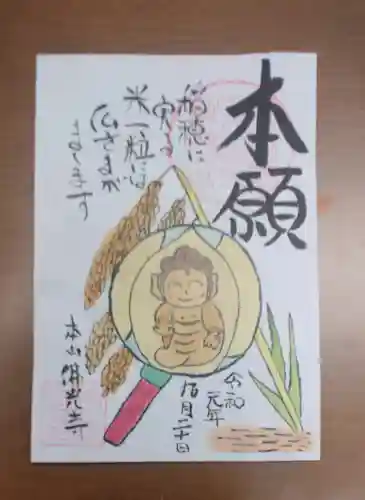 本願
稲穂に
実る
米一粒には
仏さまが
まします
令和
元年
九月二十日
本山佛光寺